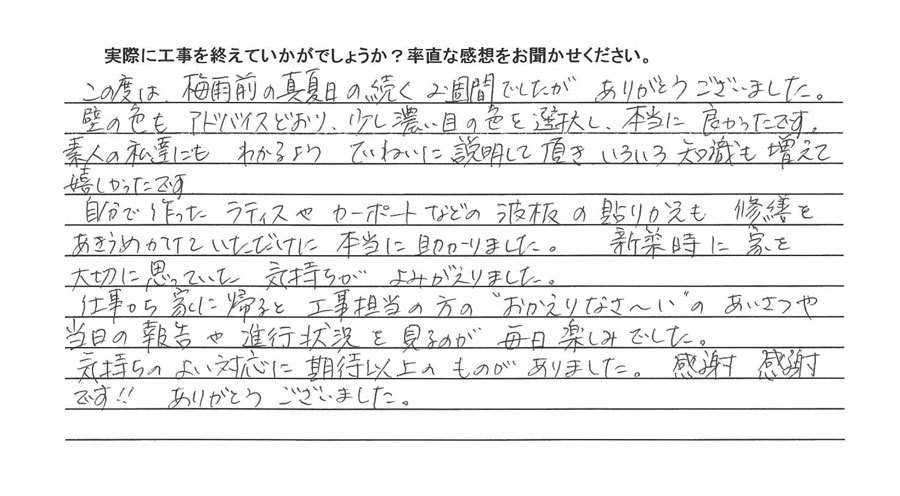 実際に工事を終えていかがでしょうか？率直な感想をお聞かせください。
この度は、梅雨前の真夏日の続く2週間でしたが ありがとうございました。
壁の色も アドバイスどおり、少し濃い目の色を選択し、本当に 良かったです。
素人の私達にも わかるよう ていねいに説明して頂き いろいろ知識も増えて
嬉しかったです
自分で作った ラティスや カーポートなどの 波板の貼りかえも 修繕を
あきらめかけていただけに 本当に助かりました。 新築時に 家を
大切に思っていた 気持ちが よみがえりました。
仕事から家に帰ると 工事担当の方の"おかえりなさ～い"の あいさつや
当日の報告や 進行状況を見るのが 毎日楽しみでした。
気持ちのよい対応に 期待以上の ものが ありました。 感謝 感謝
です!! ありがとう ございました。